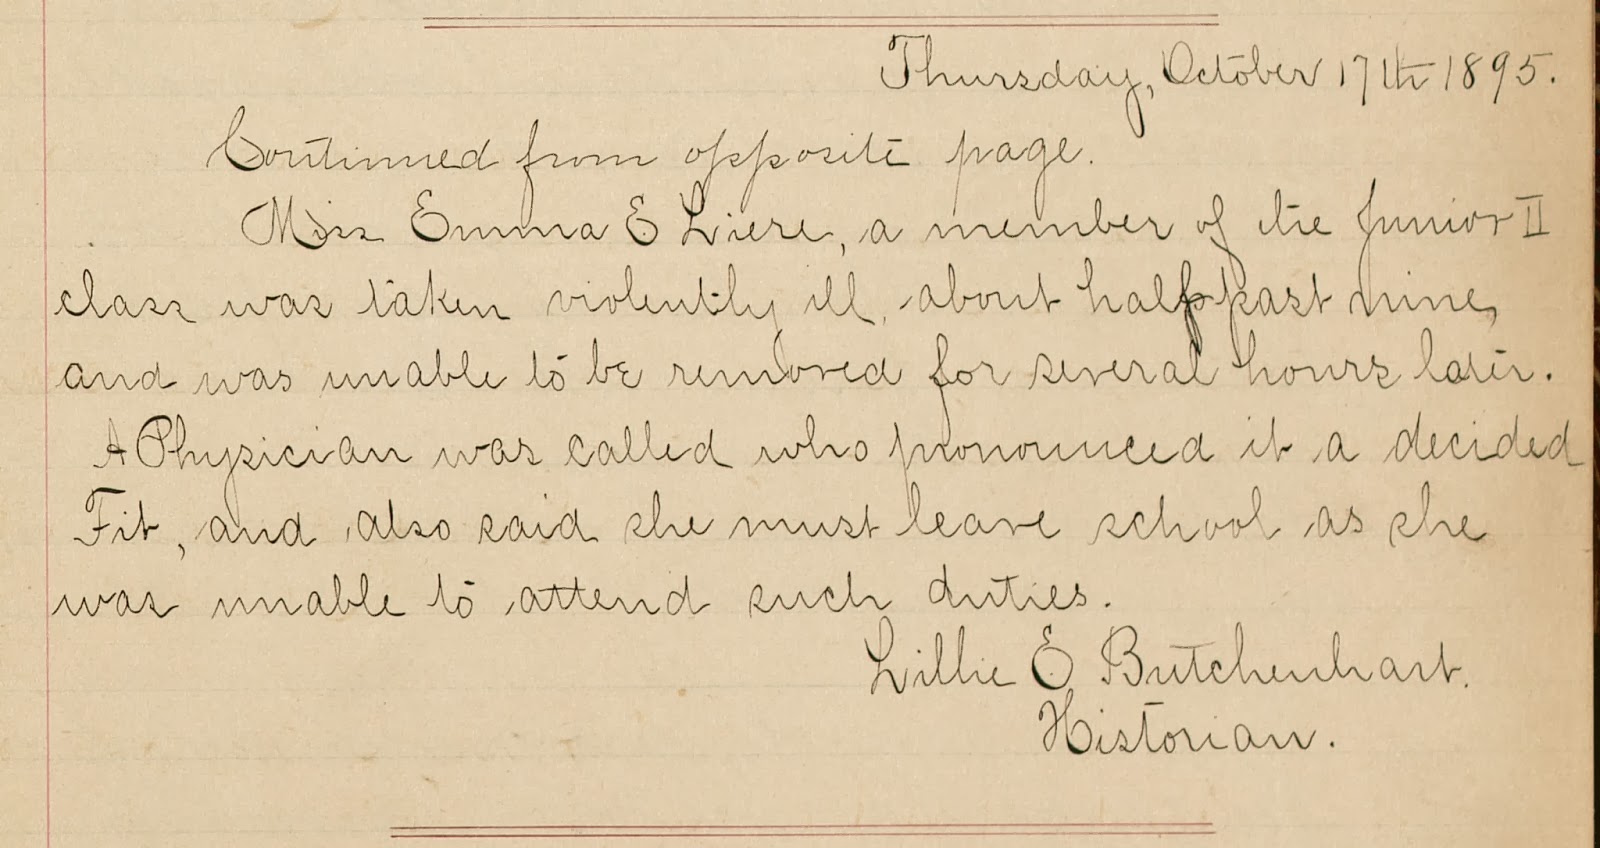 Thursday, October 17th 1895.
Continued from opposite page.
Miss Emma E Liere, a member of the Junior II
class was taken violently ill, about half past nine,
and was unable to be removed for several hours later.
A Physician was called who pronounced it a decided
Fit, and also said she must leave school as she
was unable to attend such duties.
Lillie E Butchenhart.
Historian.